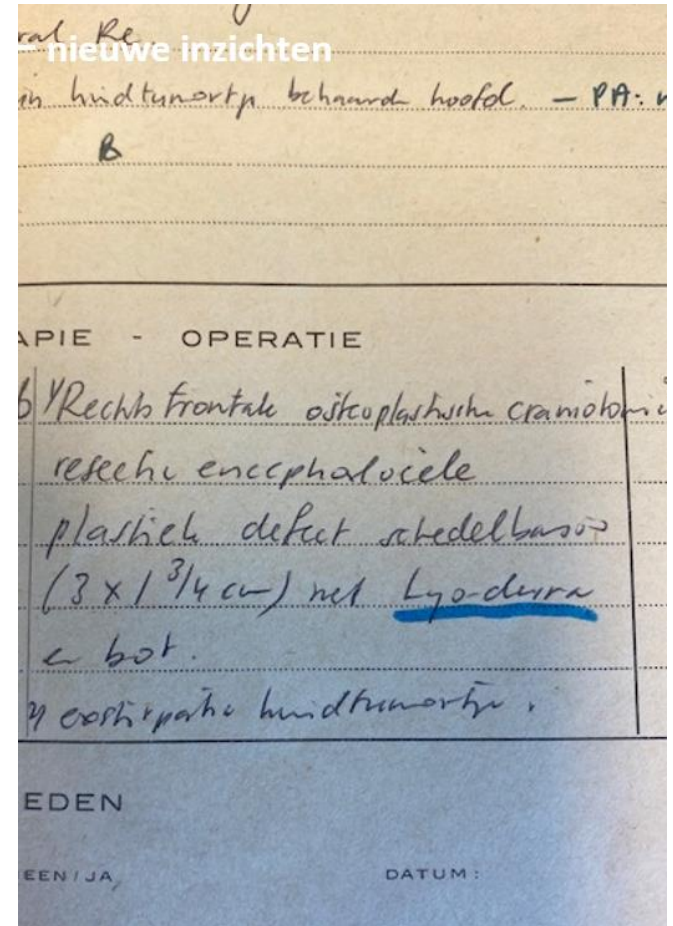 ral Re
– nieuwe inzichten
in huidtumortje behaarde hoofd. – PA:
B
APIE - OPERATIE
Rechts frontale osteoplastische craniotomie
resectie encephalocèle
plastiek defect schedelbasis
(3 x 1 3/4 cm) met Lyo-dura
en bot.
exstirpatie huidtumortje.
EDEN
EEN / JA,
DATUM :